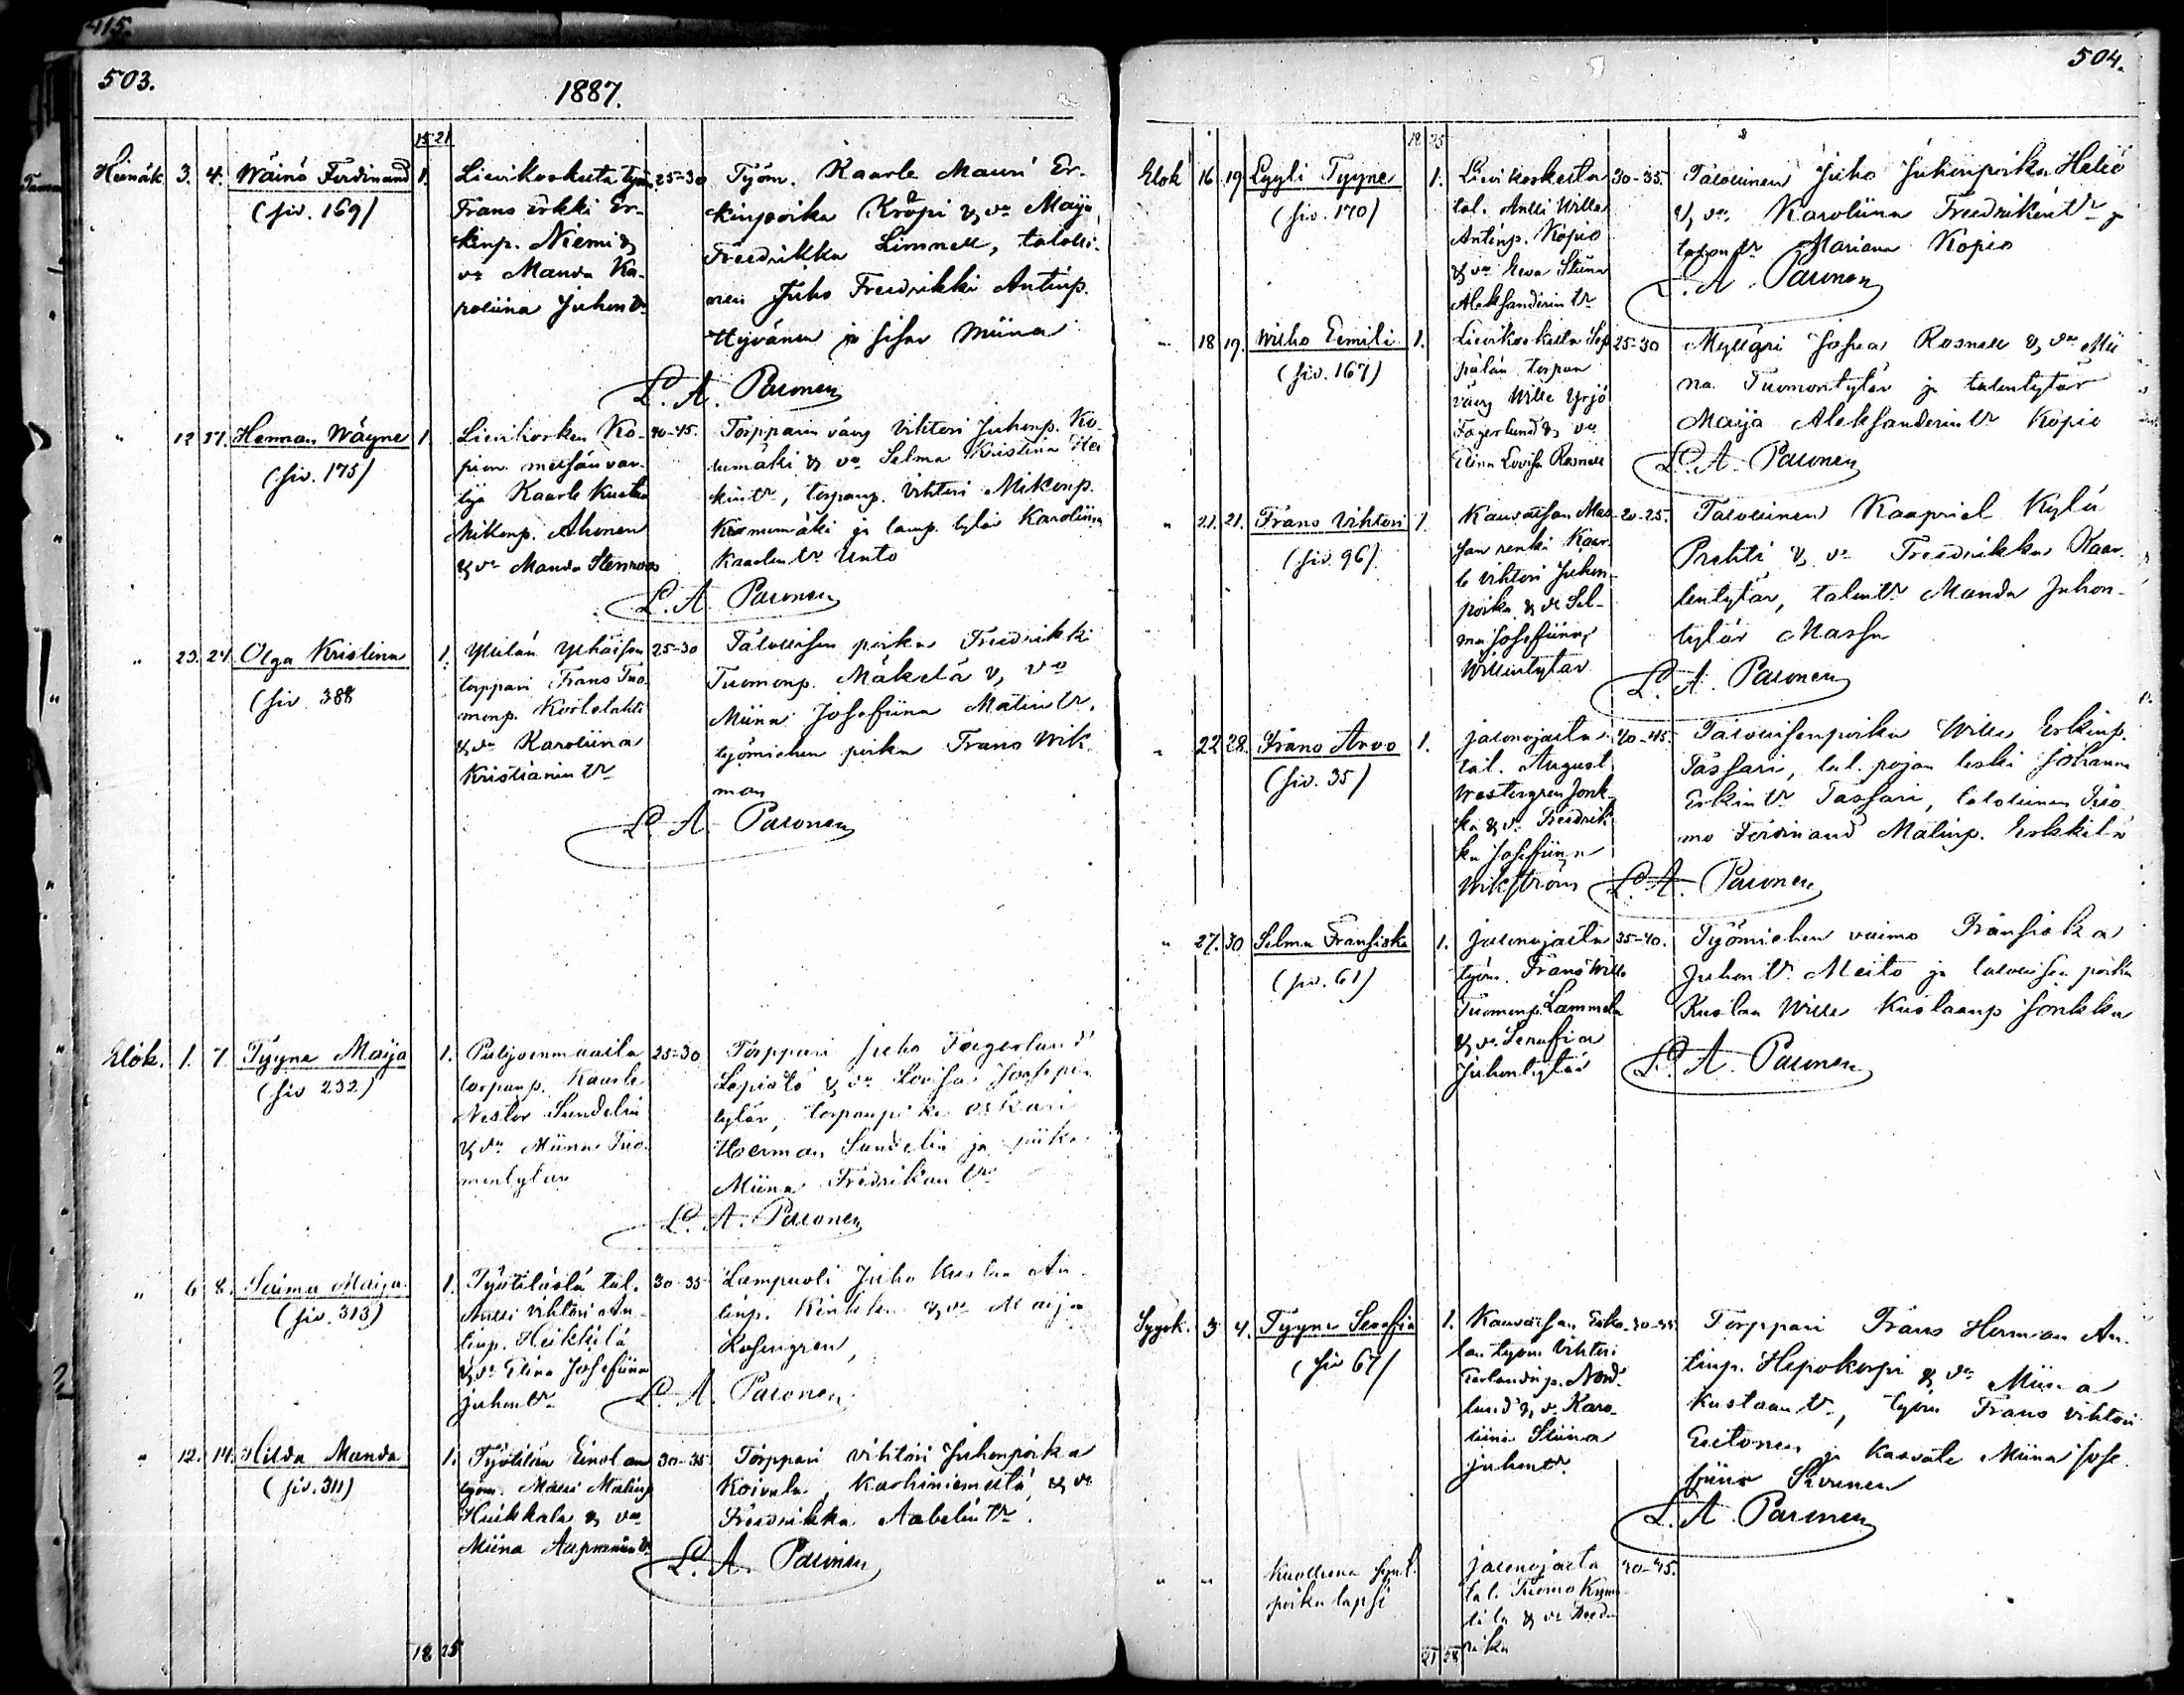 415.
503.
1887.
15 21
Heinäk. 3. 4. Wäinö Ferdinand 1.
(siv. 169)
Lievikoskelta työm. 25-30
Frans Erkki Er-
kinp. Niemi &
vo Manda Ka-
roliina Juhontr
Työm. Kaarle Mauri Er-
kinpoika Kröpi & vo Maija
Freedrikka Limnell, talolli-
nen Juho Freedrikki Antinp.
Hyvänen ja sisar Miina
L. A. Paronen
" 12 17. Herman Wäyne 1
(siv. 175)
Lievikosken Ko- 40-45.
pion metsänvar-
tija Kaarle Kustaa
Mikonp. Ahonen
& vo Manda Stenroos
Torpparin vävy Vihtori Juhonp. Ko-
& vo Selma Kristina Hei
kintr, torpanp. Vihtori Mikonp.
ja lamp. tytär Karoliina
Kaarlentr Unto
L. A. Paronen
" 23. 24. Olga Kristina 1.
(siv. 388
Yhäisen 25-30
torppari Frans Tuo-
monp.
& vo Karoliina
Kristianintr
Talollisen poika Freedrikki
Tuomonp. Mäkelä & vo
Miina Josefiina Matintr,
työmiehen poika Frans Wik-
man
L. A. Paronen
Elok. 1. 7. Tyyne Maija 1.
(siv 232)
25-30
torpanp. Kaarle
Nestor Sundelin
& vo Miina Tuo-
montytär
Torppari Juho Fagerlund
& vo Lovisa Joosepin
tytär, torpanpoika Oskari
Herman Sundelin ja piika
Miina Fredrikantr
L. A. Paronen
" 6 8. Saima Maija 1.
(siv. 313)
Työtilästä tal. 30-35
Antti Vihtori An-
tinp. Heikkilä
& vo Elina Josefiina
Juhontr
Lampuoti Juho Kustaa An-
tinp. & vo Maija
Rosengren,
L. A. Paronen
" 12. 14. Hilda Manda 1.
(siv. 311)
Työtilän Einolan 30-35
työm. Matti Matinp
Heikkala & vo
Miina
Torppari Vihtori Juhonpoika
Koivula, Karhiniemestä, & vo
Freedrikka Aabelintr.
L. A. Paronen
18 25
504.
18 25
Elok 16 19 Lyyli Tyyne 1.
(siv. 170)
Lievikoskelta 30-35.
tal. Antti Wille
Antinp. Kopio
& vo Eeva Stiina
Aleksanderintr
Talollinen Juho Juhonpoika
& vo Karoliina Freedrikintr ja
talontr Mariana Kopio
L. A. Paronen
" 18 19. Wilho Eemili 1.
(siv. 167)
Lievikoskelta Sep 25-30
pälän torpan
vävy Wille Yrjö
Fagerlund & vo
Elina Lovisa Rosnell
Mylläri Josua Rosnell & vo Mii
na Tuomontytär ja talontytär
Maija Aleksanderintr Kopio
L. A. Paronen
" 21. 21. Frans Vihtori 1
(siv. 96)
Kauvatsan Mas- 20-25.
san renki Kaar-
le Vihtori Juhon-
poika & vo Sel-
ma Josefiina
Willentytär
Talollinen Kaapriel Kylä
Prehti & vo Freedrikka Kaar-
lentytär, talontr Manda Juhon-
tytär Massa
L. A. Paronen
" 22 28. Frans Arvo 1.
(siv. 35)
Jalonojasta 40-45.
tal. August
Westergren Jonk-
ka & vo Freedrik
ka Josefiina
Wikström
Talollisenpoika Wille Erkinp.
Tassari, tal. pojan leski Johanna
Erkintr Tassari, talollinen Tuo-
mo Ferdinand Matinp. Erkkilä
L. A. Paronen
" 27. 30 Selma Fransiska 1.
(siv. 61)
Jalonojasta 35-40.
työm. Frans Wille
Tuomonp. Lammela
& vo Serafia
Juhontytär
Työmiehen vaimo Fransiska
Juhontr. Meito ja talollisen poika
Kustaa Wille Kustaanp Jonkka
L. A. Paronen
Syysk. 3 4. Tyyne Serafia 1.
(siv 67)
Kauvatsan 30-35.
lan työm Vihtori
Eerlandinp. Nord-
lund & vo Karo-
liina Stiina
Juhontr.
Torppari Frans Herman An-
tinp. Hepokorpi & vo Miina
Kustaantr, työm Frans Vihtori
ja kasvate Miina Jose
fiina
L. A. Paronen
" " Kuolleena synt.
poika lapsi
Jalonojasta 40-45.
tal. Tuomo
& vo Freed-
rika
21 28